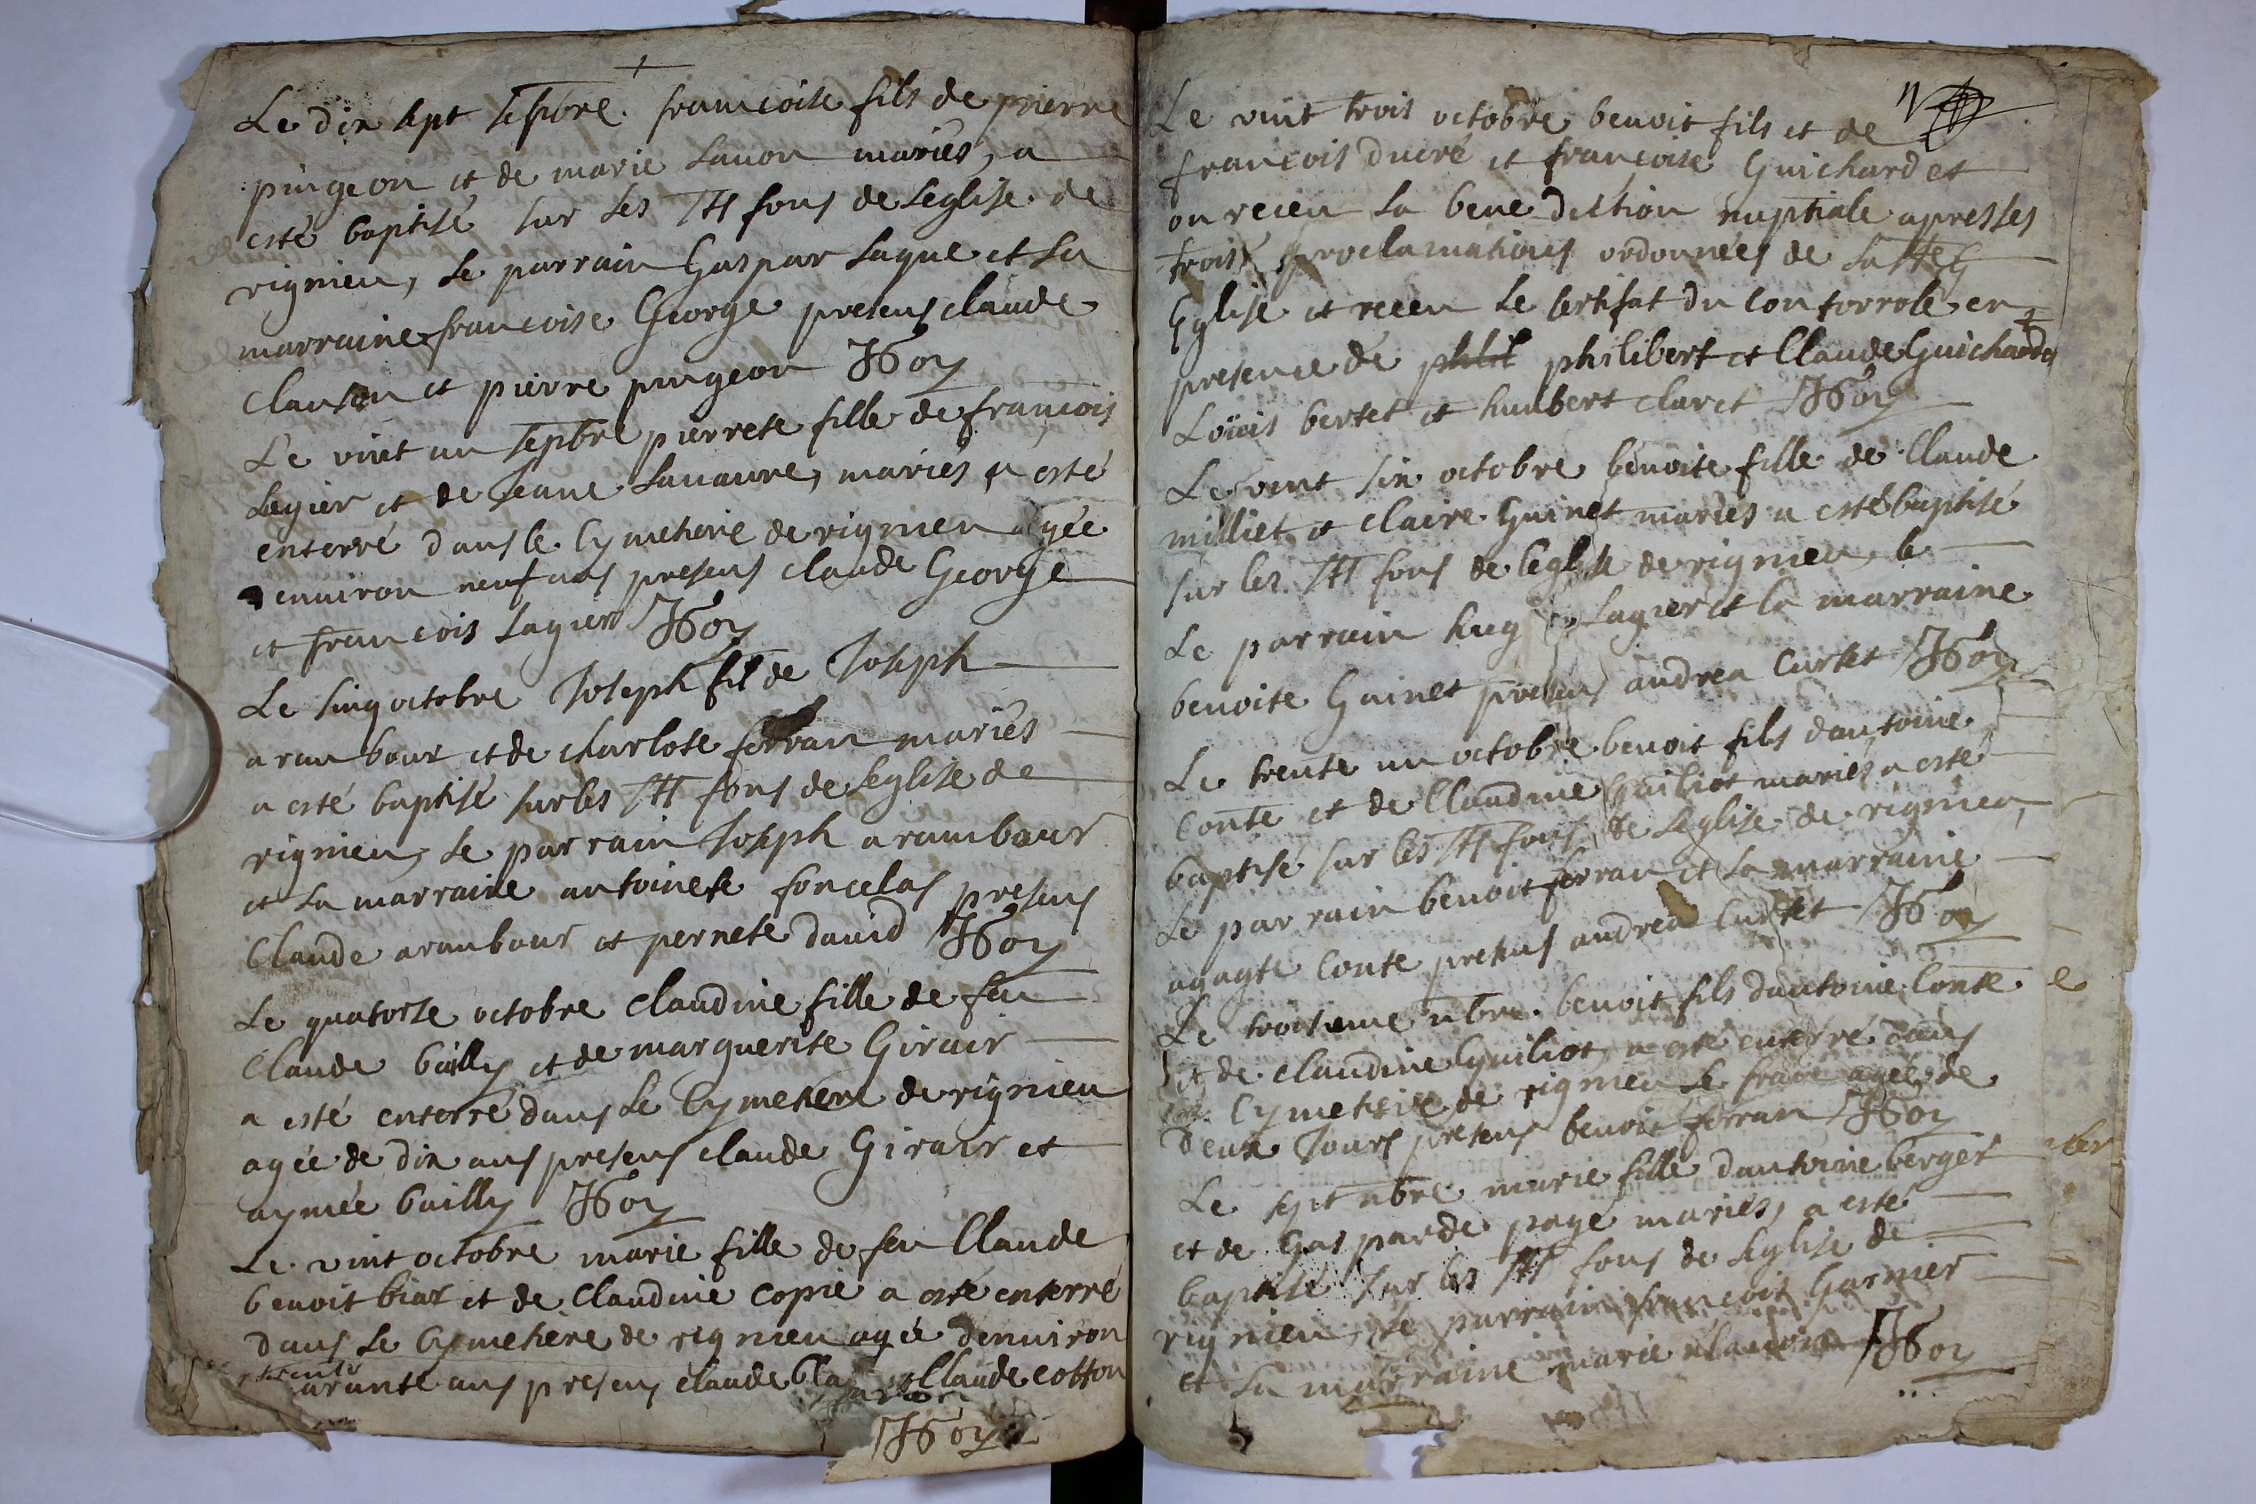 Le dix sept sepbre. francoise fils de pierre
pingeon et de marie Lauon mariés, a
esté baptisé sur les Sts fons de Leglise de
rignieu, Le parrain Gaspar Laque et La
marraine francoise George presens claude
et pierre pingeon
Le vint un sepbre pierrete fille de francois
Legier et de Jeane Lauaure, mariés a esté
enterré dans le Cymetiere de rignieu agée
denuiron neuf ans presens claude George
et francois Lagier
Le sinq octobre Joseph fil de Joseph
arambour et de charlote ferran mariés
a esté baptisé sur les Sts fons de Leglise de
rignieu, Le parrain Joseph arambour
et La marraine antoinete foncelas presens
Claude arambour et pernete dauid
Le quatorse octobre claudine fille de feu
Claude bailly et de marguerite Girair
a esté enterré dans Le Cymetiere de rignieu
agée de dix ans presens claude Girair et
aymée bailly
Le vint octobre marie fille de feu Claude
benoit biar et de Claudine copie a esté enterré
dans Le Cymetiere de rignieu agée denuiron
ans presens claude Claude cotton
Le vint trois octobre benoit fils et de
francois ducré et francoise Guichard et
on receu La bene diction nuptiale apres les
trois proclamations ordonnées de La Ste
Eglise et receu Le sertifat du contorrole en
presence de philibert et Claude Guichard
Loüis bertet et humbert claret
Le vint six octobre benoite fille de Claude
milliet et claire Guinet mariés a esté baptisé
sur les Sts fons de leglise de rignieu, le
Le parrain hug Lagier et la marraine
benoite Guinet presens andrea Curtet
Le trente un octobre benoit fils dantoine
Conte et de Claudine Guiliot mariés a esté
baptisé sur les Sts fons de Leglise de rignieu,
Le parrain benoit ferran et La marraine
agagte Conte presens andrea Curtet
Le troisieme nbre. benoit fils dantoine Conte
et de claudine Guiliot a esté enterré dans
Cymetiere de rignieu Le franc agée de
deux Jours presens benoit ferran
Le sept nbre. marie fille dantoine berger
et de Gasparde pagé mariés, a esté
baptisé sur les Sts fons de Leglise de
rignieu, Le parrain francois Garnier
et La marraine marie